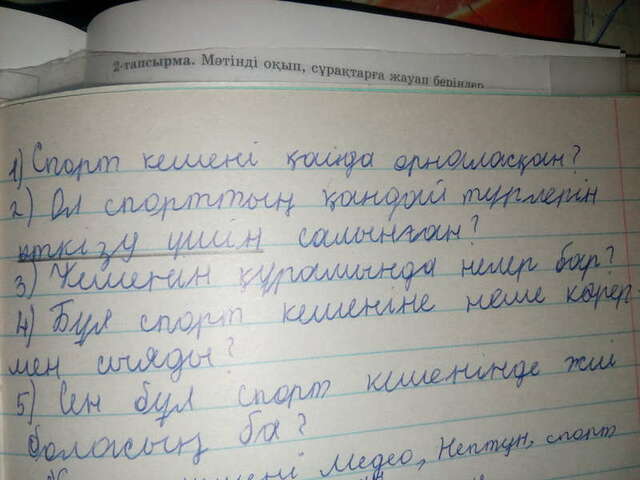 2-тапсырма. Мәтінді оқып, сұрақтарға жауап беріңдер
1) Спорт кешені қайда орналасқан?
2) Ол спорттың қандай түрлерін
өткізу үшін салынған?
3) Кешенің құрамында нелер бар?
4) Бұл спорт кешеніне неше көрер-
мен сыяды?
5) Сен бұл спорт кешенінде жиі
боласың ба?
Медео, Нептун, спорт